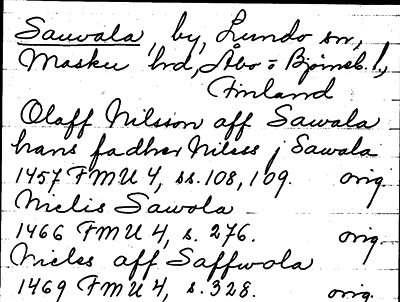 Sauvala, by, Lundo sn,
Masku hrd, Åbo = Björneb. l,
Finland
Olaff Nilsson aff Sawala
hans fadher Niless j Sawala
1457 FMU 4, ss. 108, 109. orig.
Nielis Sawola
1466 FMU 4, s. 276. orig.
Nieles aff Saffwola
1469 FMU 4, s. 328. orig.